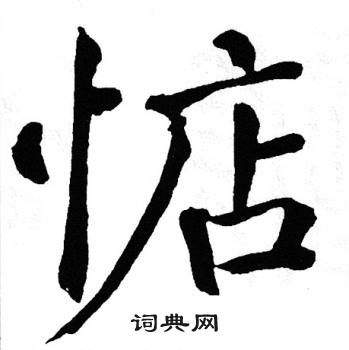 惦
词典网